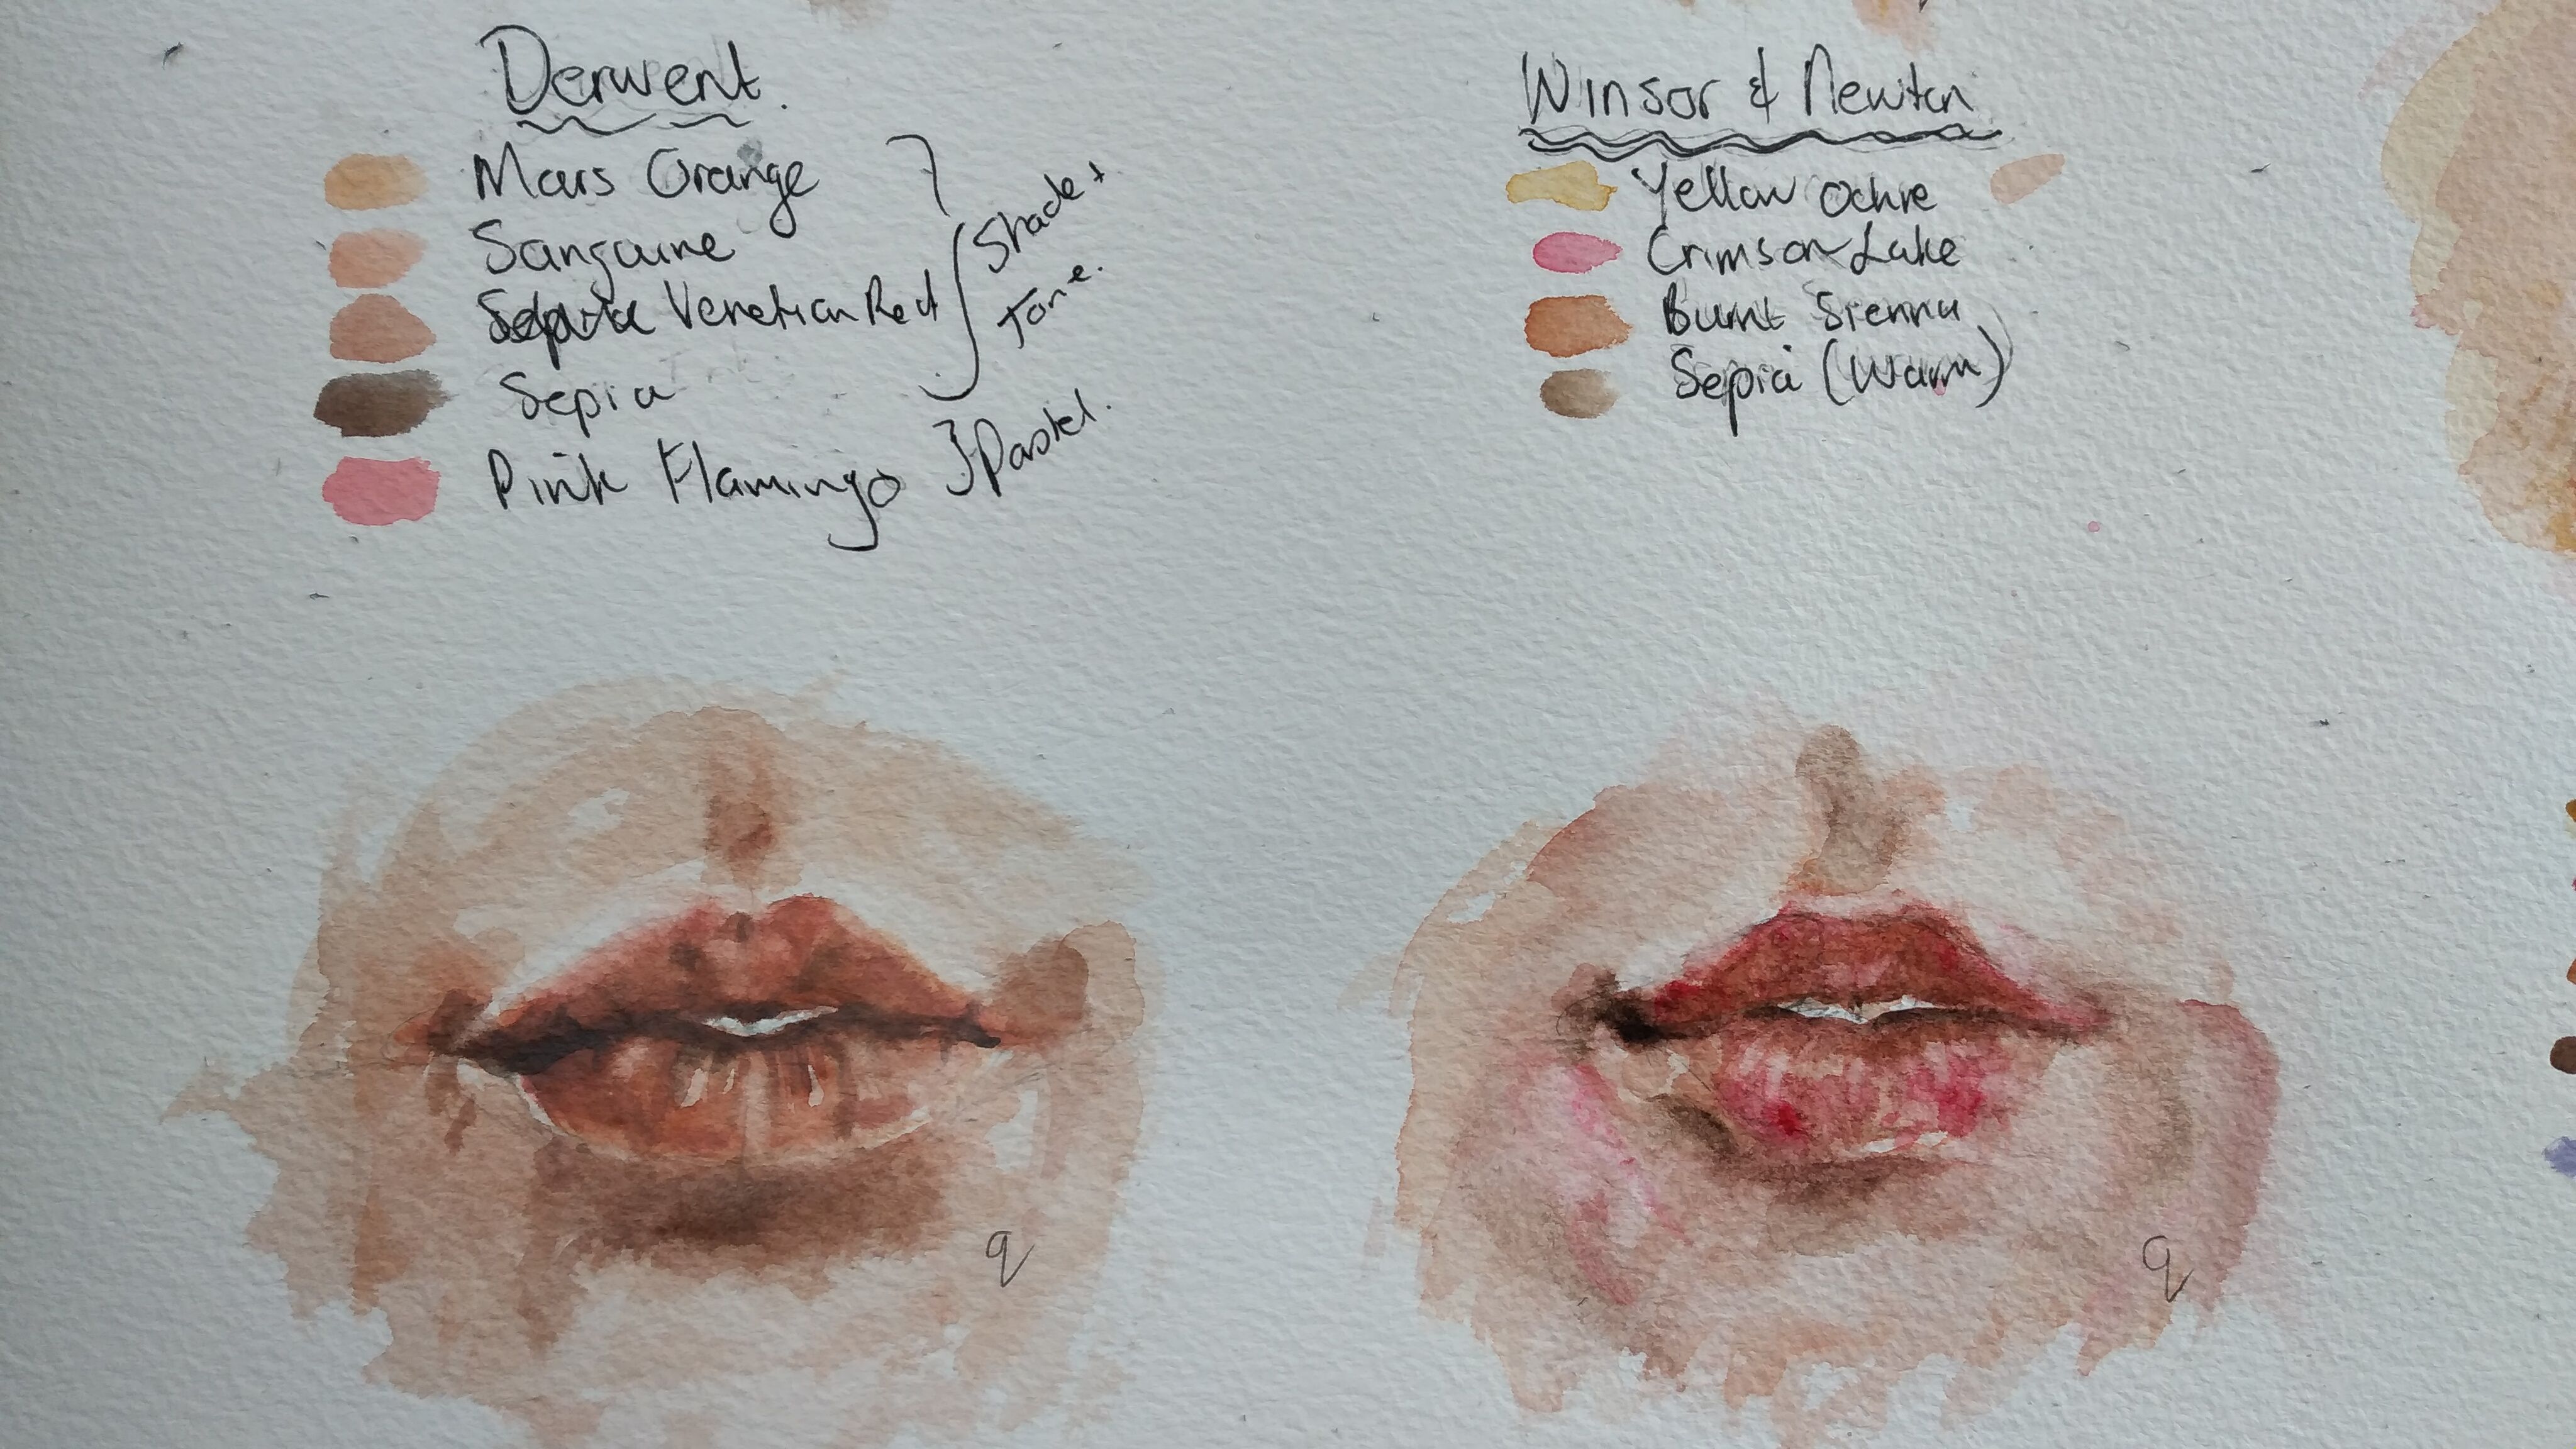 Derwent.
Mars Orange
Sanguine
Venetian Red
Sepia
Shade +
Tone.
Pink Flamingo
Pastel.
Winsor & Newton
Yellow Ochre
Crimson Lake
Burnt Sienna
Sepia (Warm)